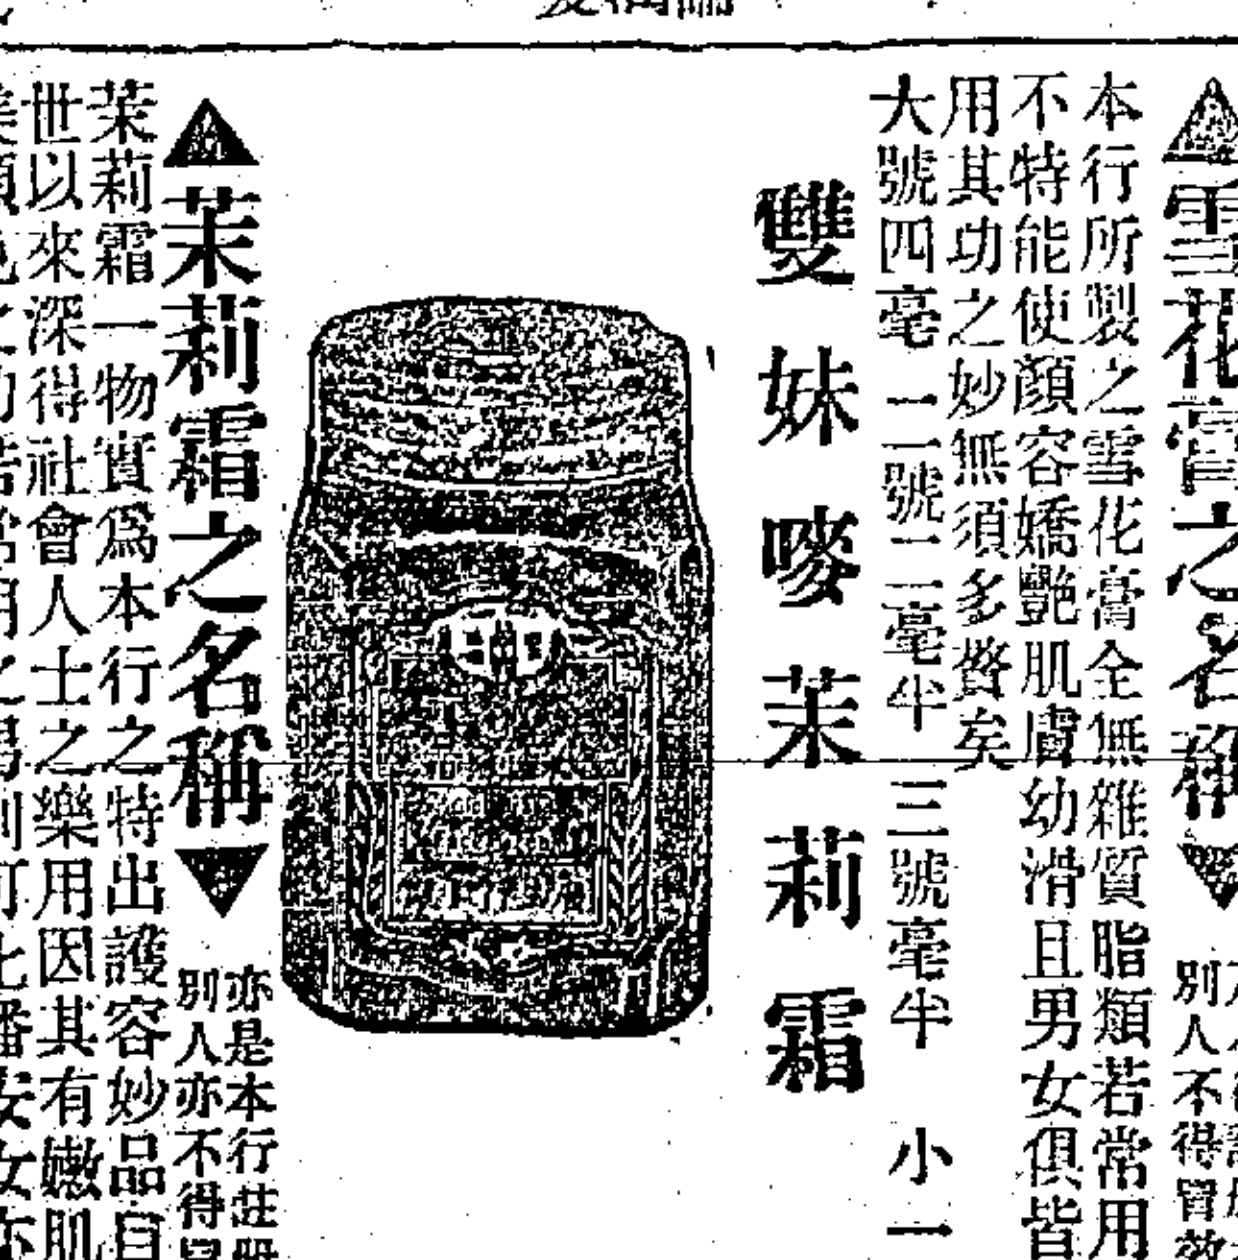 雪花膏之名稱
別人不得冒效
本行所製之雪花膏全無雜質脂類若常用
不特能使顏容嬌艷肌膚幼滑且男女俱皆
用其功之妙無須多贅矣
大號四毫 二號二毫半 三號毫半 小一
雙妹嘜茉莉霜
茉莉霜之名稱
亦是本行莊
別人亦不得冒
茉莉霜一物實爲本行之特出護容妙品自
世以來深得社會人士之樂用因其有嫩肌